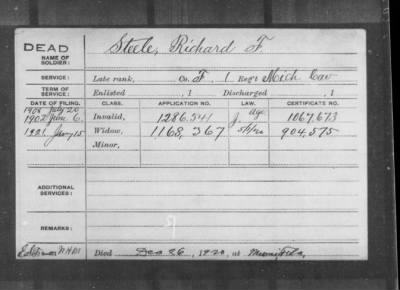 DEAD
NAME OF SOLDIER:
Steele, Richard F.
SERVICE:
Late rank, Co. F, 1 Reg't Mich Cav
TERM OF SERVICE:
Enlisted , 1 Discharged , 1
DATE OF FILING. CLASS. APPLICATION NO. LAW. CERTIFICATE NO.
July 20
Invalid, 1286.541 1067,673
1921 Jany 15 Widow, 1168,367 904,575
Minor,
ADDITIONAL SERVICES:
REMARKS:
Died Dec 26, 1920, at